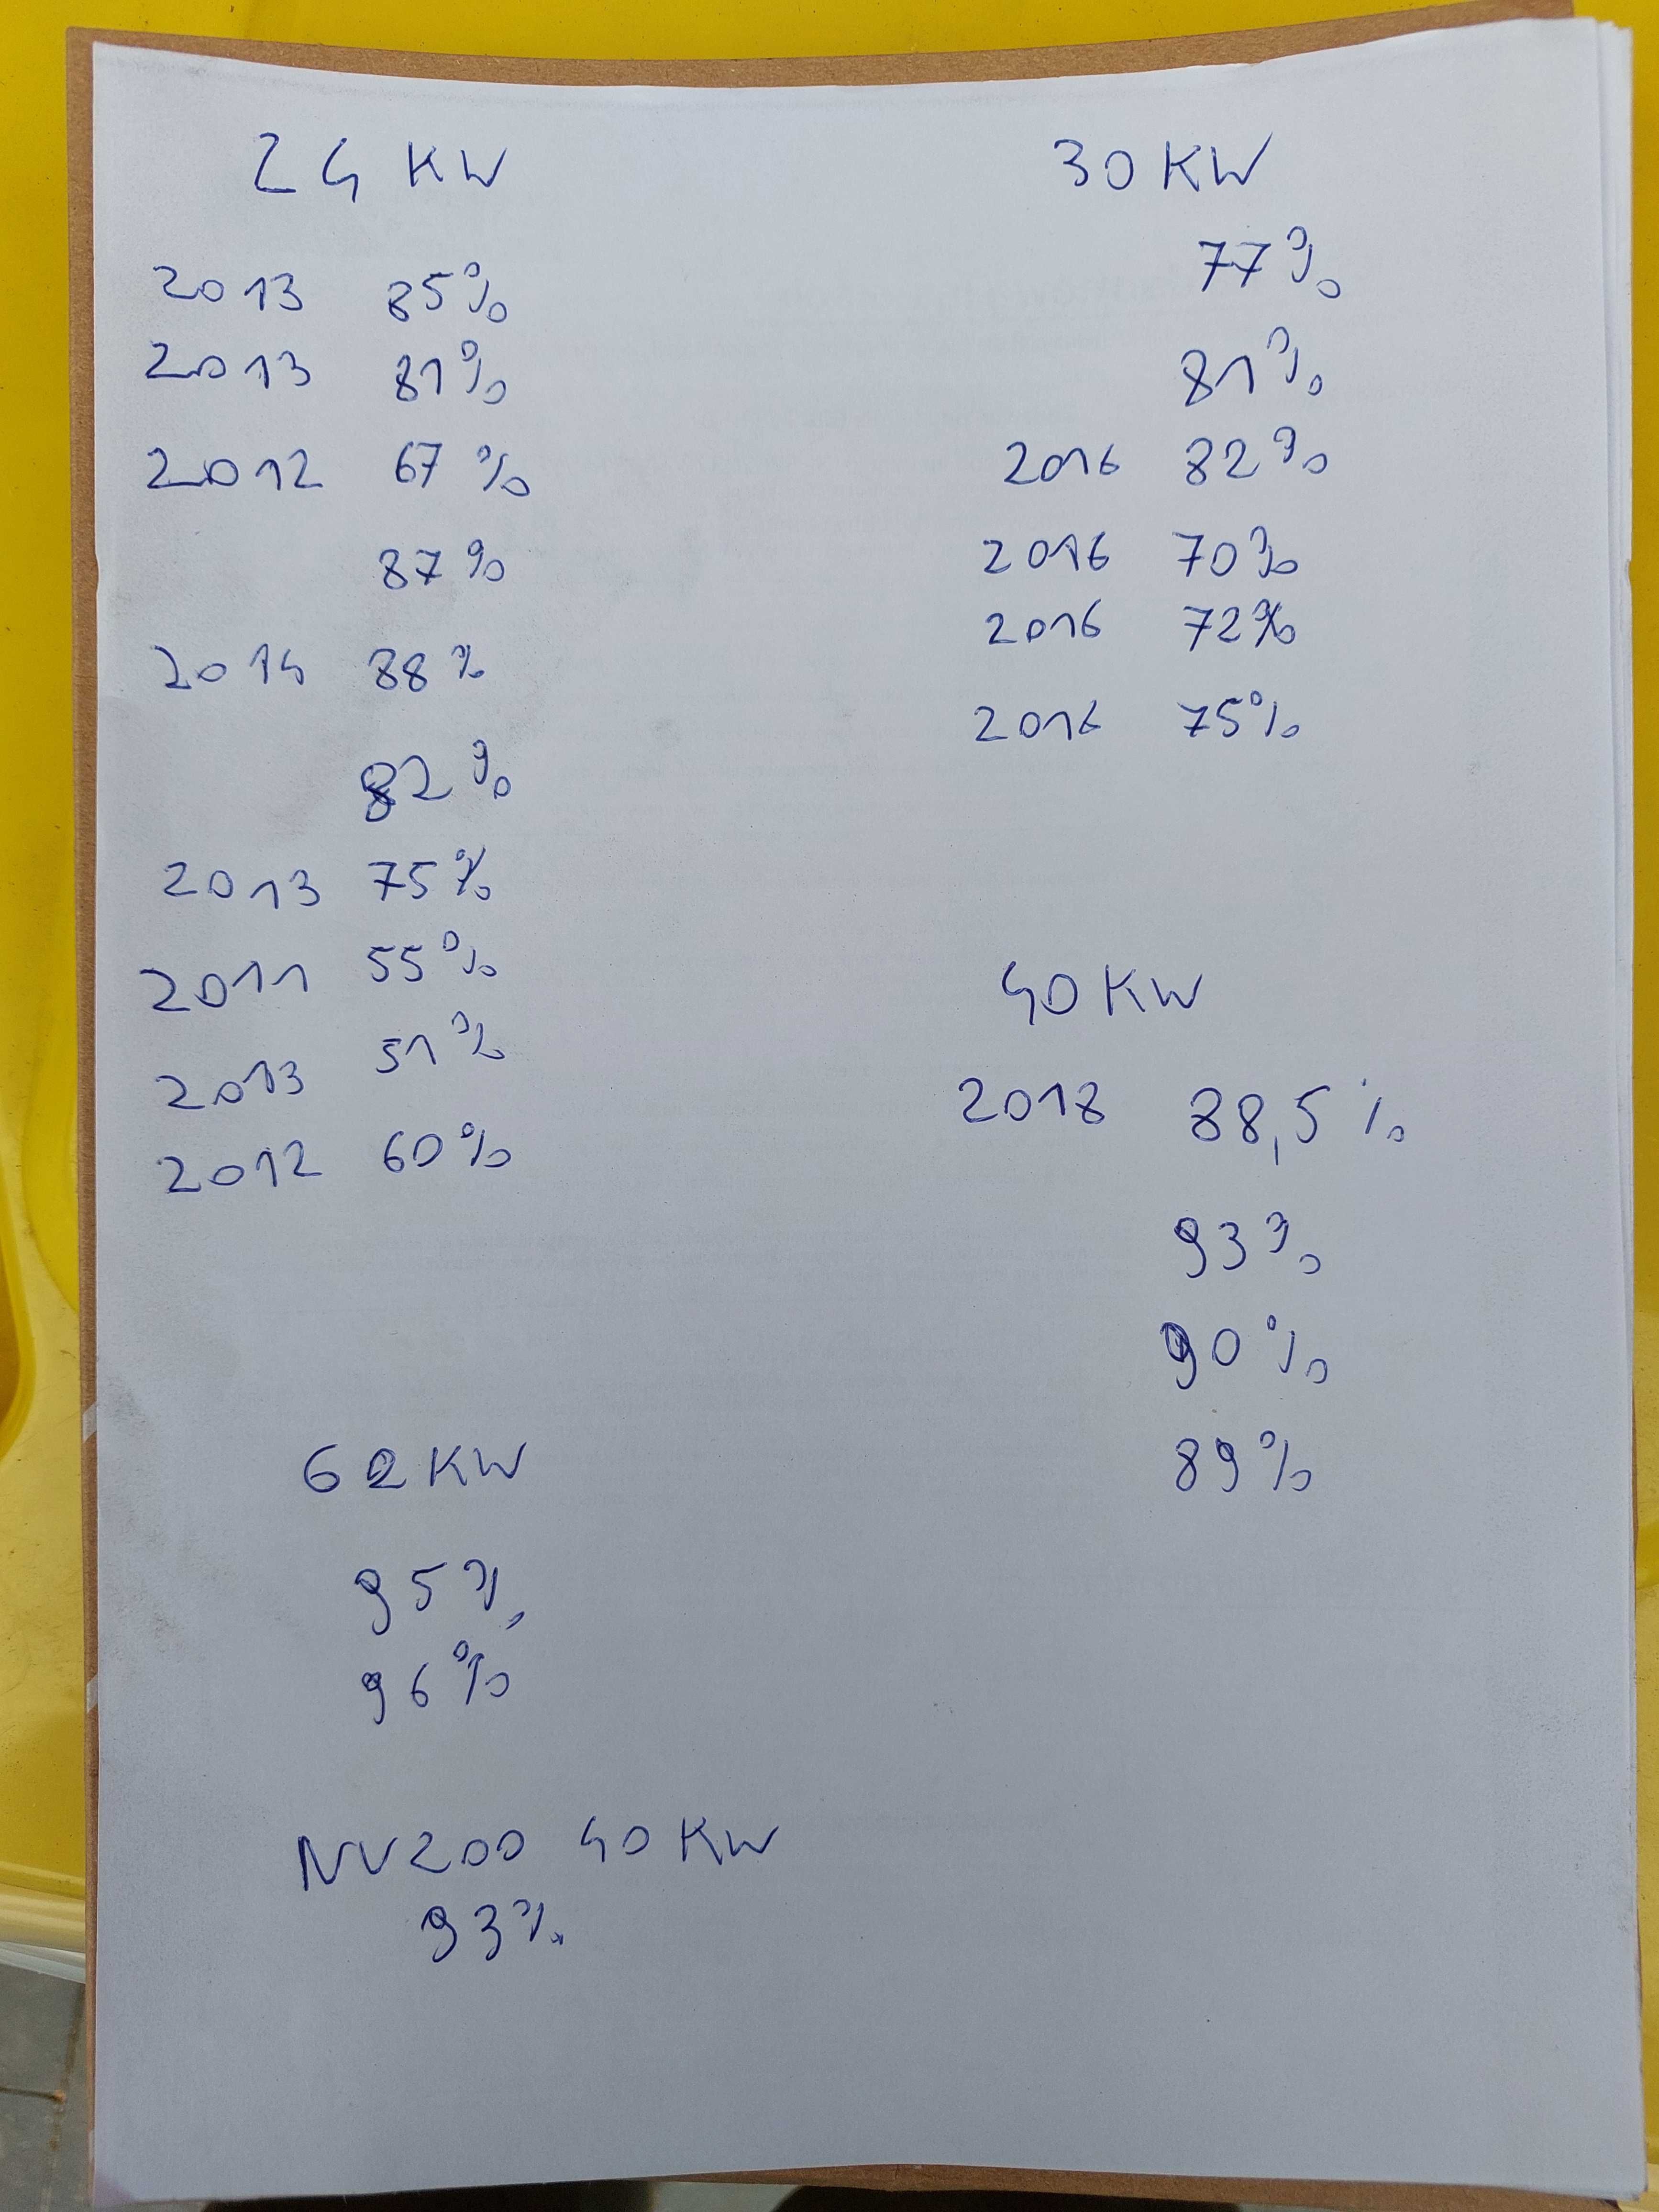 24 KW
2013 85%
2013 81%
2012 67%
87%
2014 88%
82%
2013 75%
2011 55%
2013 51%
2012 60%
62 KW
95%
96%
NV200 40 KW
93%
30 KW
77%
81%
2016 82%
2016 70%
2016 72%
2016 75%
40 KW
2018 88,5%
93%
90%
89%